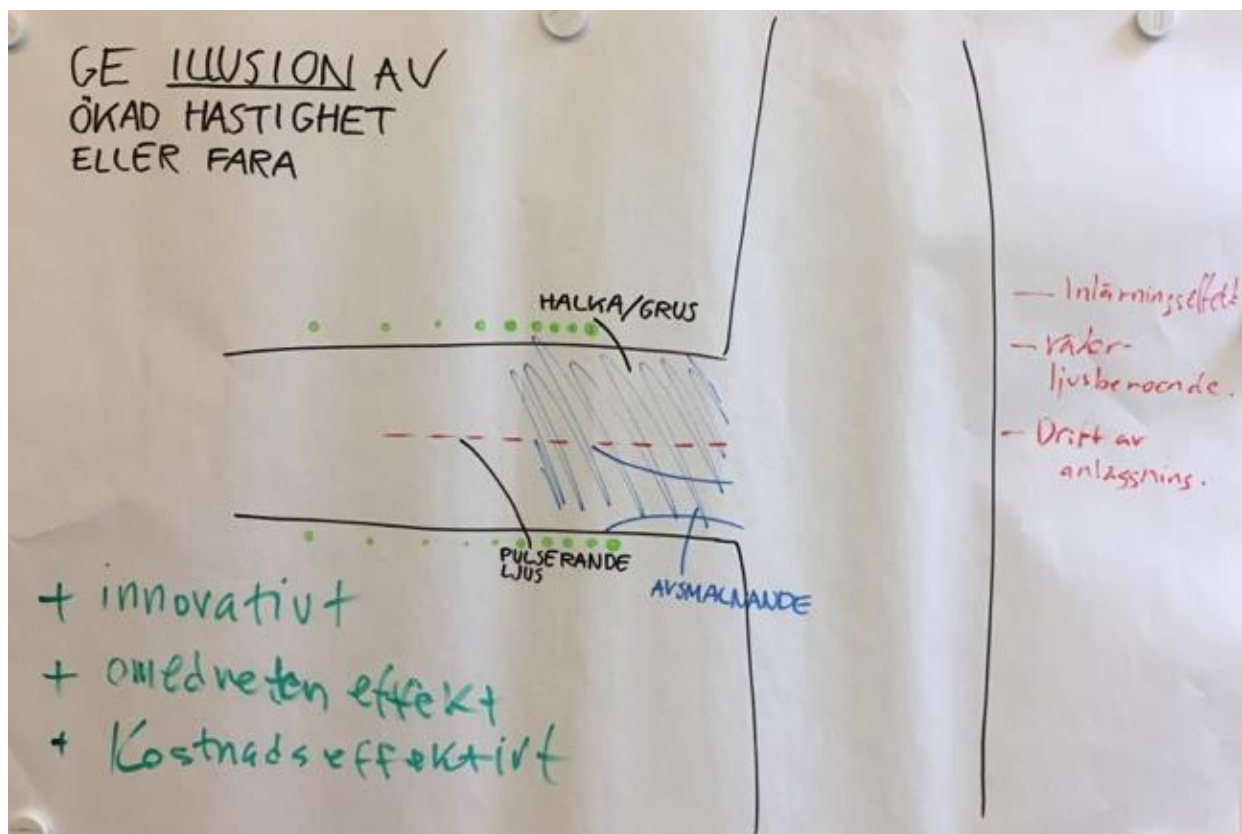 GE ILLUSION AV
ÖKAD HASTIGHET
ELLER FARA
HALKA/GRUS
PULSERANDE
LJUS
AVSMALNANDE
— Inlärningseffekt
— väder-
ljusberoende.
— Drift av
anläggning.
+ innovativt
+ omedveten effekt
+ Kostnadseffektivt